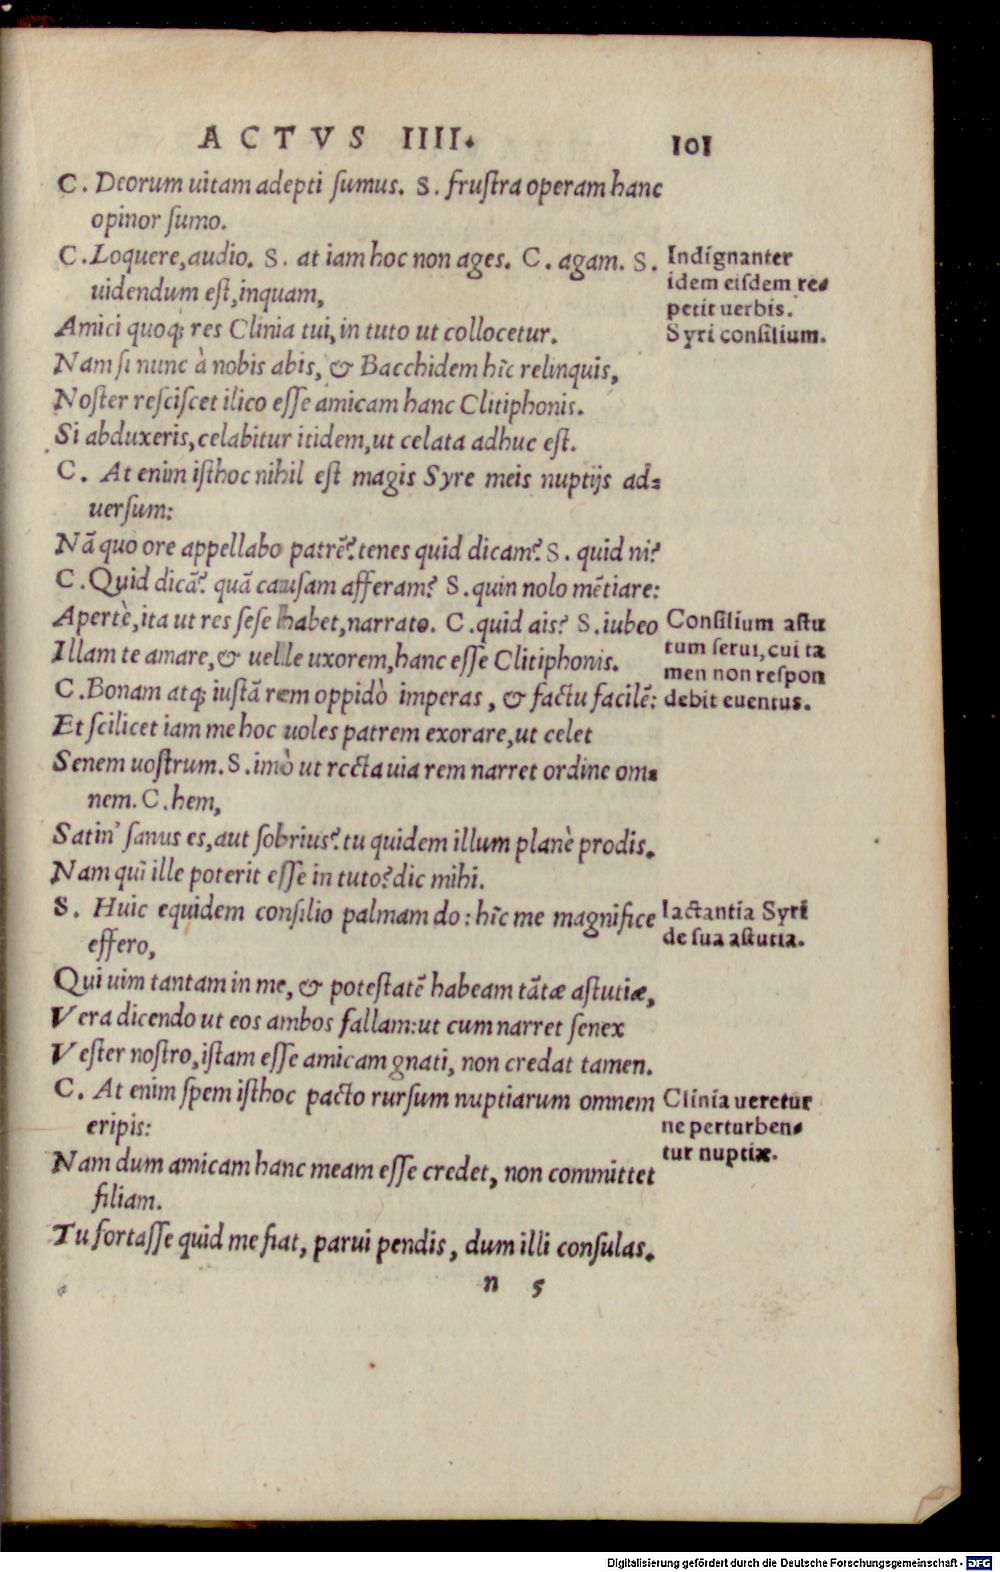 ACTVS IIII. 101
C. Deorum uitam adepti ſumus. S. fruſtra operam hanc
opinor ſumo.
C. Loquere, audio. S. at iam hoc non ages. C. agam. S.
uidendum eſt, inquam,
Amici quoqꝫ res Clinia tui, in tuto ut collocetur.
Nam ſi nunc à nobis abis, & Bacchidem hîc relinquis,
Noſter reſciſcet ilico eſſe amicam hanc Clitiphonis.
Si abduxeris, celabitur itidem, ut celata adhuc eſt.
C. At enim iſthoc nihil eſt magis Syre meis nuptijs ad=
uerſum:
Nã quo ore appellabo patrẽ? tenes quid dicam? S. quid ni?
C. Quid dicã? quã cauſam afferam? S. quin nolo mẽtiare:
Apertè, ita ut res ſeſe habet, narrato. C. quid ais? S. iubeo
Illam te amare, & uelle uxorem, hanc eſſe Clitiphonis.
C. Bonam atqꝫ iuſtã rem oppidò imperas, & factu facilẽ:
Et ſcilicet iam me hoc uoles patrem exorare, ut celet
Senem uoſtrum. S. imò ut recta uia rem narret ordine om=
nem. C. hem,
Satin' ſanus es, aut ſobrius? tu quidem illum planè prodis.
Nam quî ille poterit eſſe in tuto? dic mihi.
S. Huic equidem conſilio palmam do: hîc me magnifice
effero,
Qui uim tantam in me, & poteſtatẽ habeam tãtæ aſtutiæ,
Vera dicendo ut eos ambos fallam: ut cum narret ſenex
Veſter noſtro, iſtam eſſe amicam gnati, non credat tamen.
C. At enim ſpem iſthoc pacto rurſum nuptiarum omnem
eripis:
Nam dum amicam hanc meam eſſe credet, non committet
filiam.
Tu fortaſſe quid me fiat, parui pendis, dum illi conſulas.
n 5
Indignanter
idem eiſdem re=
petit uerbis.
Syri conſilium.
Conſilium aſtu
tum ſerui, cui ta
men non reſpon
debit euentus.
Iactantia Syri
de ſua aſtutia.
Clinia ueretur
ne perturben=
tur nuptiæ.
Digitalisierung gefördert durch die Deutsche Forschungsgemeinschaft - DFG